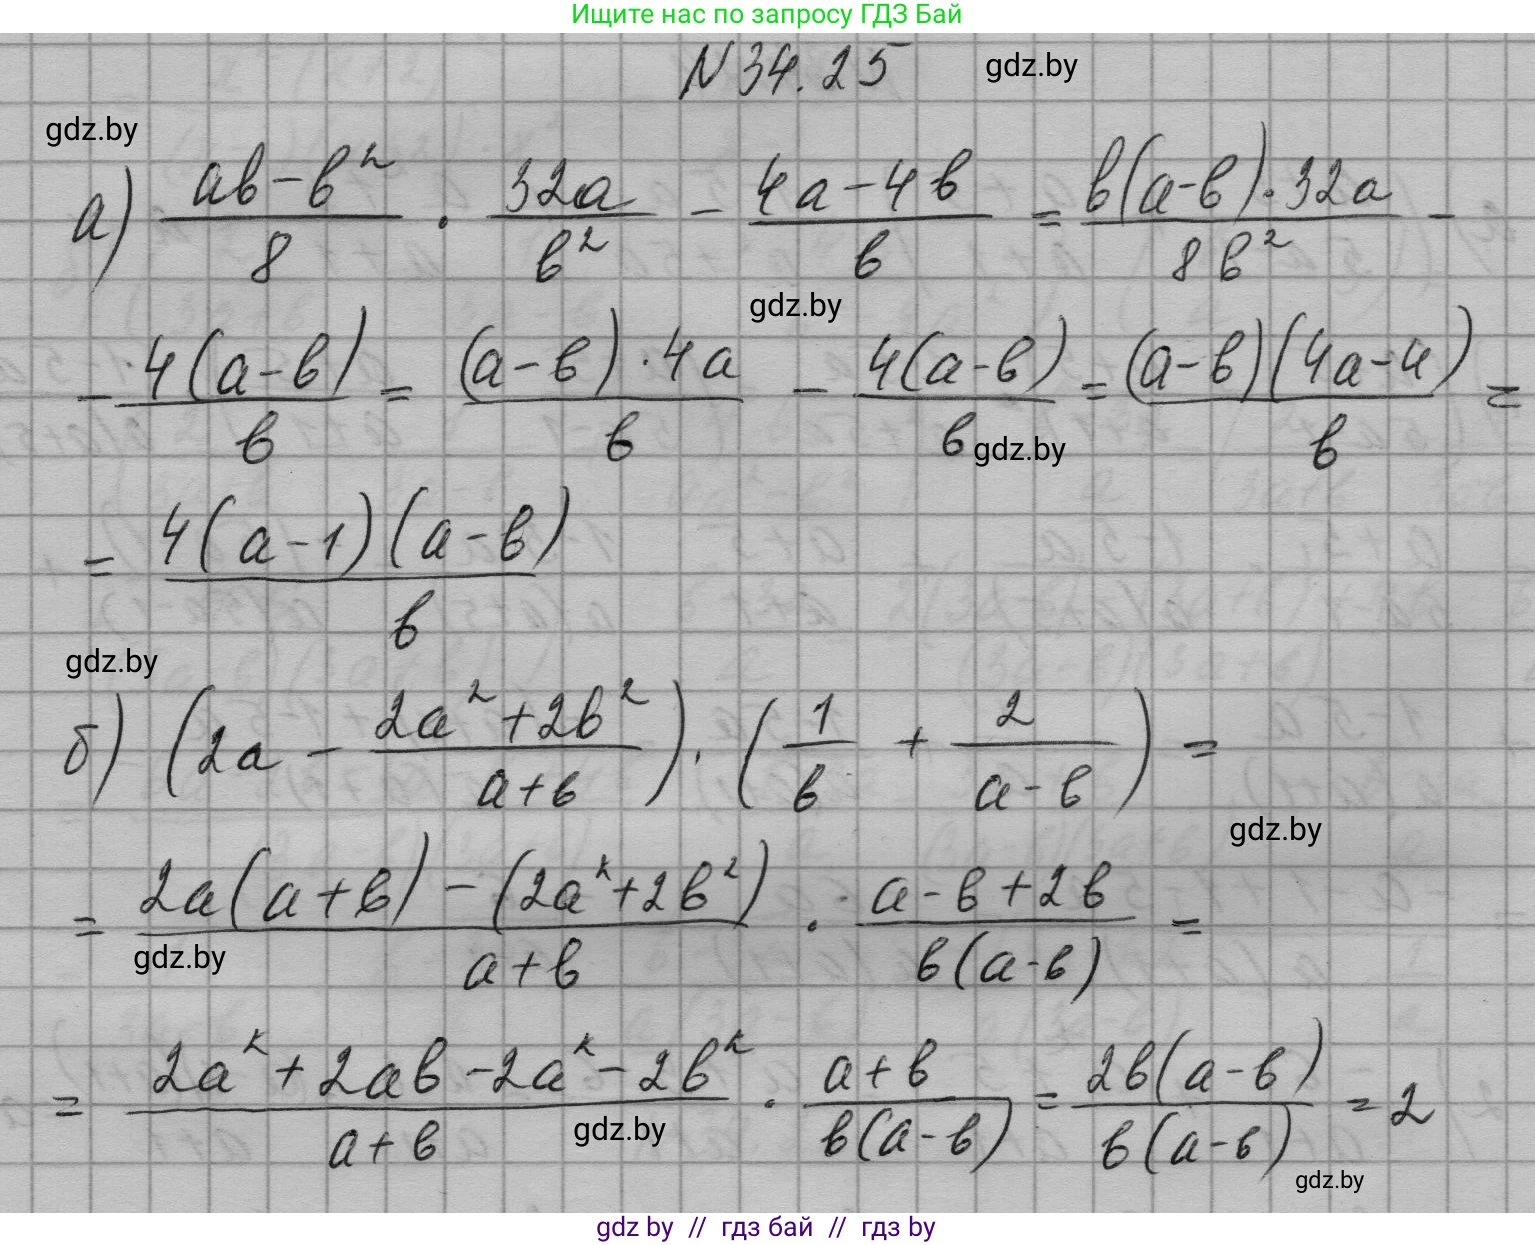 Ищите нас по запросу ГДЗ Бай
N 34.25 gdz.by
gdz.by
а) (ab-b²)/8 · 32a/b² - (4a-4b)/b = b(a-b)·32a/8b² -
gdz.by
- 4(a-b)/b = (a-b)·4a/b - 4(a-b)/b = (a-b)(4a-4)/b =
gdz.by
= 4(a-1)(a-b)/b
gdz.by
б) (2a - (2a²+2b²)/(a+b)) · (1/b + 2/(a-b)) =
gdz.by
= (2a(a+b)-(2a²+2b²))/(a+b) · (a-b+2b)/(b(a-b)) =
gdz.by
= (2a²+2ab-2a²-2b²)/(a+b) · (a+b)/(b(a-b)) = 2b(a-b)/(b(a-b)) = 2
gdz.by
gdz.by
gdz by // гдз бай // гдз by